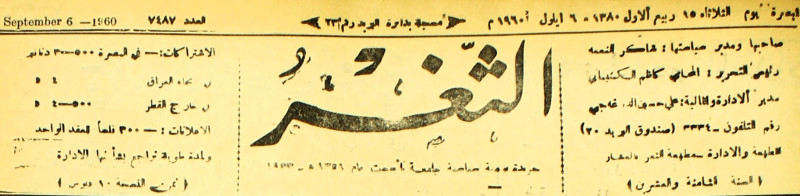 البصرة يوم الثلاثاء ١٥ ربيع الاول ١٣٨٠ - ٦ ايلول ١٩٦٠ م
مسجلة بدائرة البريد رقم ٢٣
العدد ٧٤٨٧
September 6 —1960
صاحبها ومدير سياستها : شاكر النعمة
رئيس التحرير : المحامي كاظم
مدير الادارة والمالية : علي
رقم التلفون - ٣٣٣٤ (صندوق البريد ٢٠)
المطبعة والادارة - مطبعة الثغر بالعشار
( السنة الثامنة والعشرين )
الثَّغْر
جريدة يومية سياسية جامعة عام
الاشتراكات : - في البصرة ٥٠٠-٣ دنانير
العراق ٤ »
خارج القطر ٥٠٠-٤ »
الاعلانات : - ٣٠٠ فلساً للعقد الواحد
ولمدة طويلة تراجع بشأنها الادارة
( ثمن النسخة ١٠ فلوس )